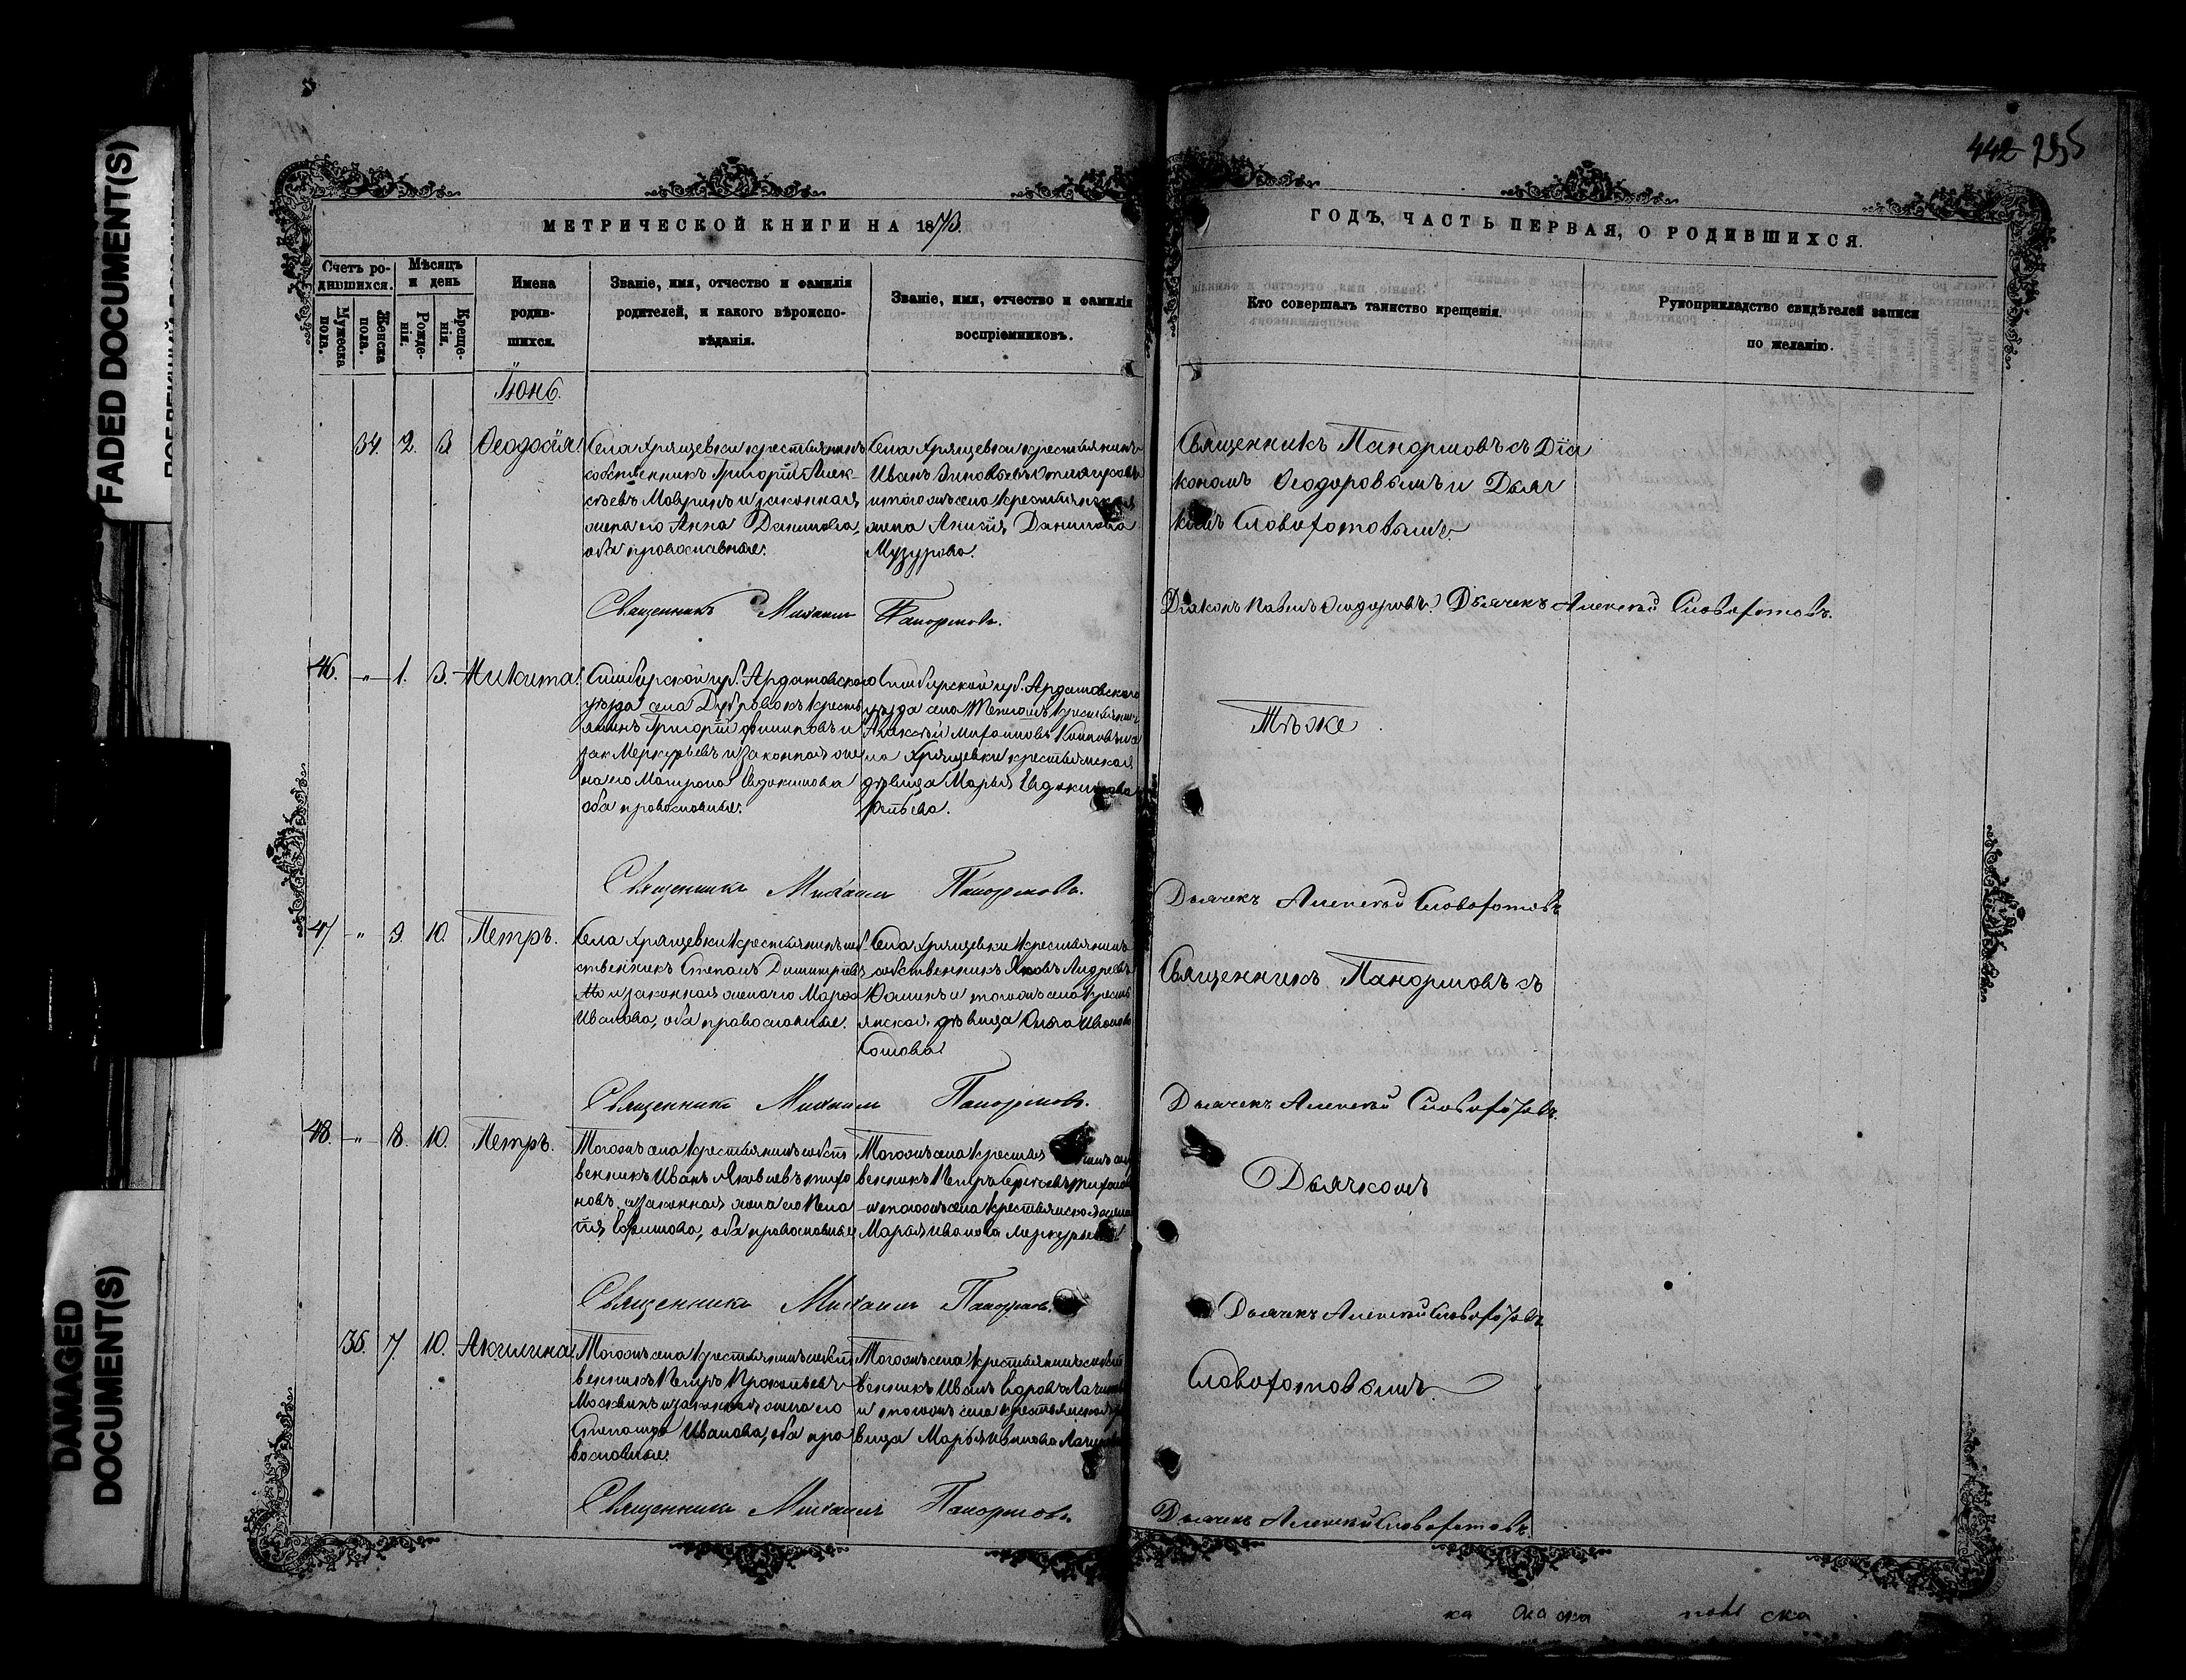 FADED DOCUMENT(S)
DAMAGED
DOCUMENT(S)
442 295
МЕТРИЧЕСКОЙ КНИГИ НА 1873.
ГОДЪ, ЧАСТЬ ПЕРВАЯ, О РОДИВШИХСЯ.
Счетъ ро-
дившихся.
Мужеска
пола.
Женска
пола.
Мѣсяцъ
и день
Рожде-
нія.
Креще-
нія.
Имена
родив-
шихся.
Званіе, имя, отчество и фамилія
родителей, и какого вѣроиспо-
вѣданія.
Званіе, имя, отчество и фамилія
воспріемниковъ.
Кто совершалъ таинство крещенія.
Рукоприкладство свидѣтелей записи
по желанію.
Іюнь.
34. 2. 3 Ѳеодосія
Села Хрящевки крестьянинъ
собственникъ Григорій Алек-
сѣевъ Мавринъ и законная
жена его Анна Данилова,
оба православные.
Села Хрящевки крестьянинъ
Иванъ Зиновьевъ
и тогожъ села крестьянская
жена Анисія Данилова
Музурова.
Священникъ Панормовъ съ Діа
кономъ Ѳеодоровымъ и Дьяч
комъ Словохотовымъ.
Священникъ Михаилъ Панормовъ.
Діаконъ Павелъ Ѳеодоровъ. Дьячекъ Алексѣй Словохотовъ.
46. " 1. 3. Никита.
Симбирской губ. Ардатовскаго
уѣзда села Дубровокъ кресть
янинъ Григорій Филиповъ и
зак Меркурьевъ и законная же
на его Матрона Евдокимова
оба православные.
Симбирской губ. Ардатовскаго
уѣзда села крестьянинъ
Алексѣй
ла Хрящевки крестьянская
дѣвица Марья Евдокимова
Тѣже
Священникъ Михаилъ Панормовъ.
Дьячекъ Алексѣй Словохотовъ
47. " 9. 10. Петръ.
Села Хрящевки крестьянинъ соб
ственникъ Степанъ Димитріевъ
и законная жена его Марѳа
Иванова, оба православные.
Села Хрящевки крестьянинъ
собственникъ Яковъ Андреевъ
Юдинъ и тогожъ села кресть
янская дѣвица Ольга Иванова
Сомова
Священникъ Панормовъ съ
Священникъ Михаилъ Панормовъ.
Дьячекъ Алексѣй Словохотовъ.
48. " 8. 10. Петръ.
Тогожъ села крестьянинъ собст
венникъ Иванъ Яковлевъ Тихо
новъ и законная жена его Пела
гія Ефимова, оба православные
Тогожъ села крестьянинъ соб
венникъ Петръ Сергѣевъ Тихонов
и тогожъ села крестьянская жена
Марья Иванова Меркурьева
Дьячкомъ
Священникъ Михаилъ Панормовъ.
Дьячекъ Алексѣй Словохотовъ
35. 7. 10. Акилина
Тогожъ села крестьянинъ собст
венникъ Петръ Прокопьевъ
Москвинъ и законная жена его
Степанида Иванова, оба пра
вославные.
Тогожъ села крестьянинъ собст
венникъ Иванъ
и тогожъ села крестьянская дѣ
вица Марья Иванова
Словохотовымъ.
Священникъ Михаилъ Панормовъ.
Дьячекъ Алексѣй Словохотовъ.